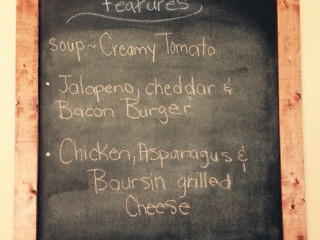 features
soup ~ Creamy Tomato
• Jalapeno, cheddar &
Bacon Burger
• Chicken, Asparagus &
Boursin grilled
Cheese